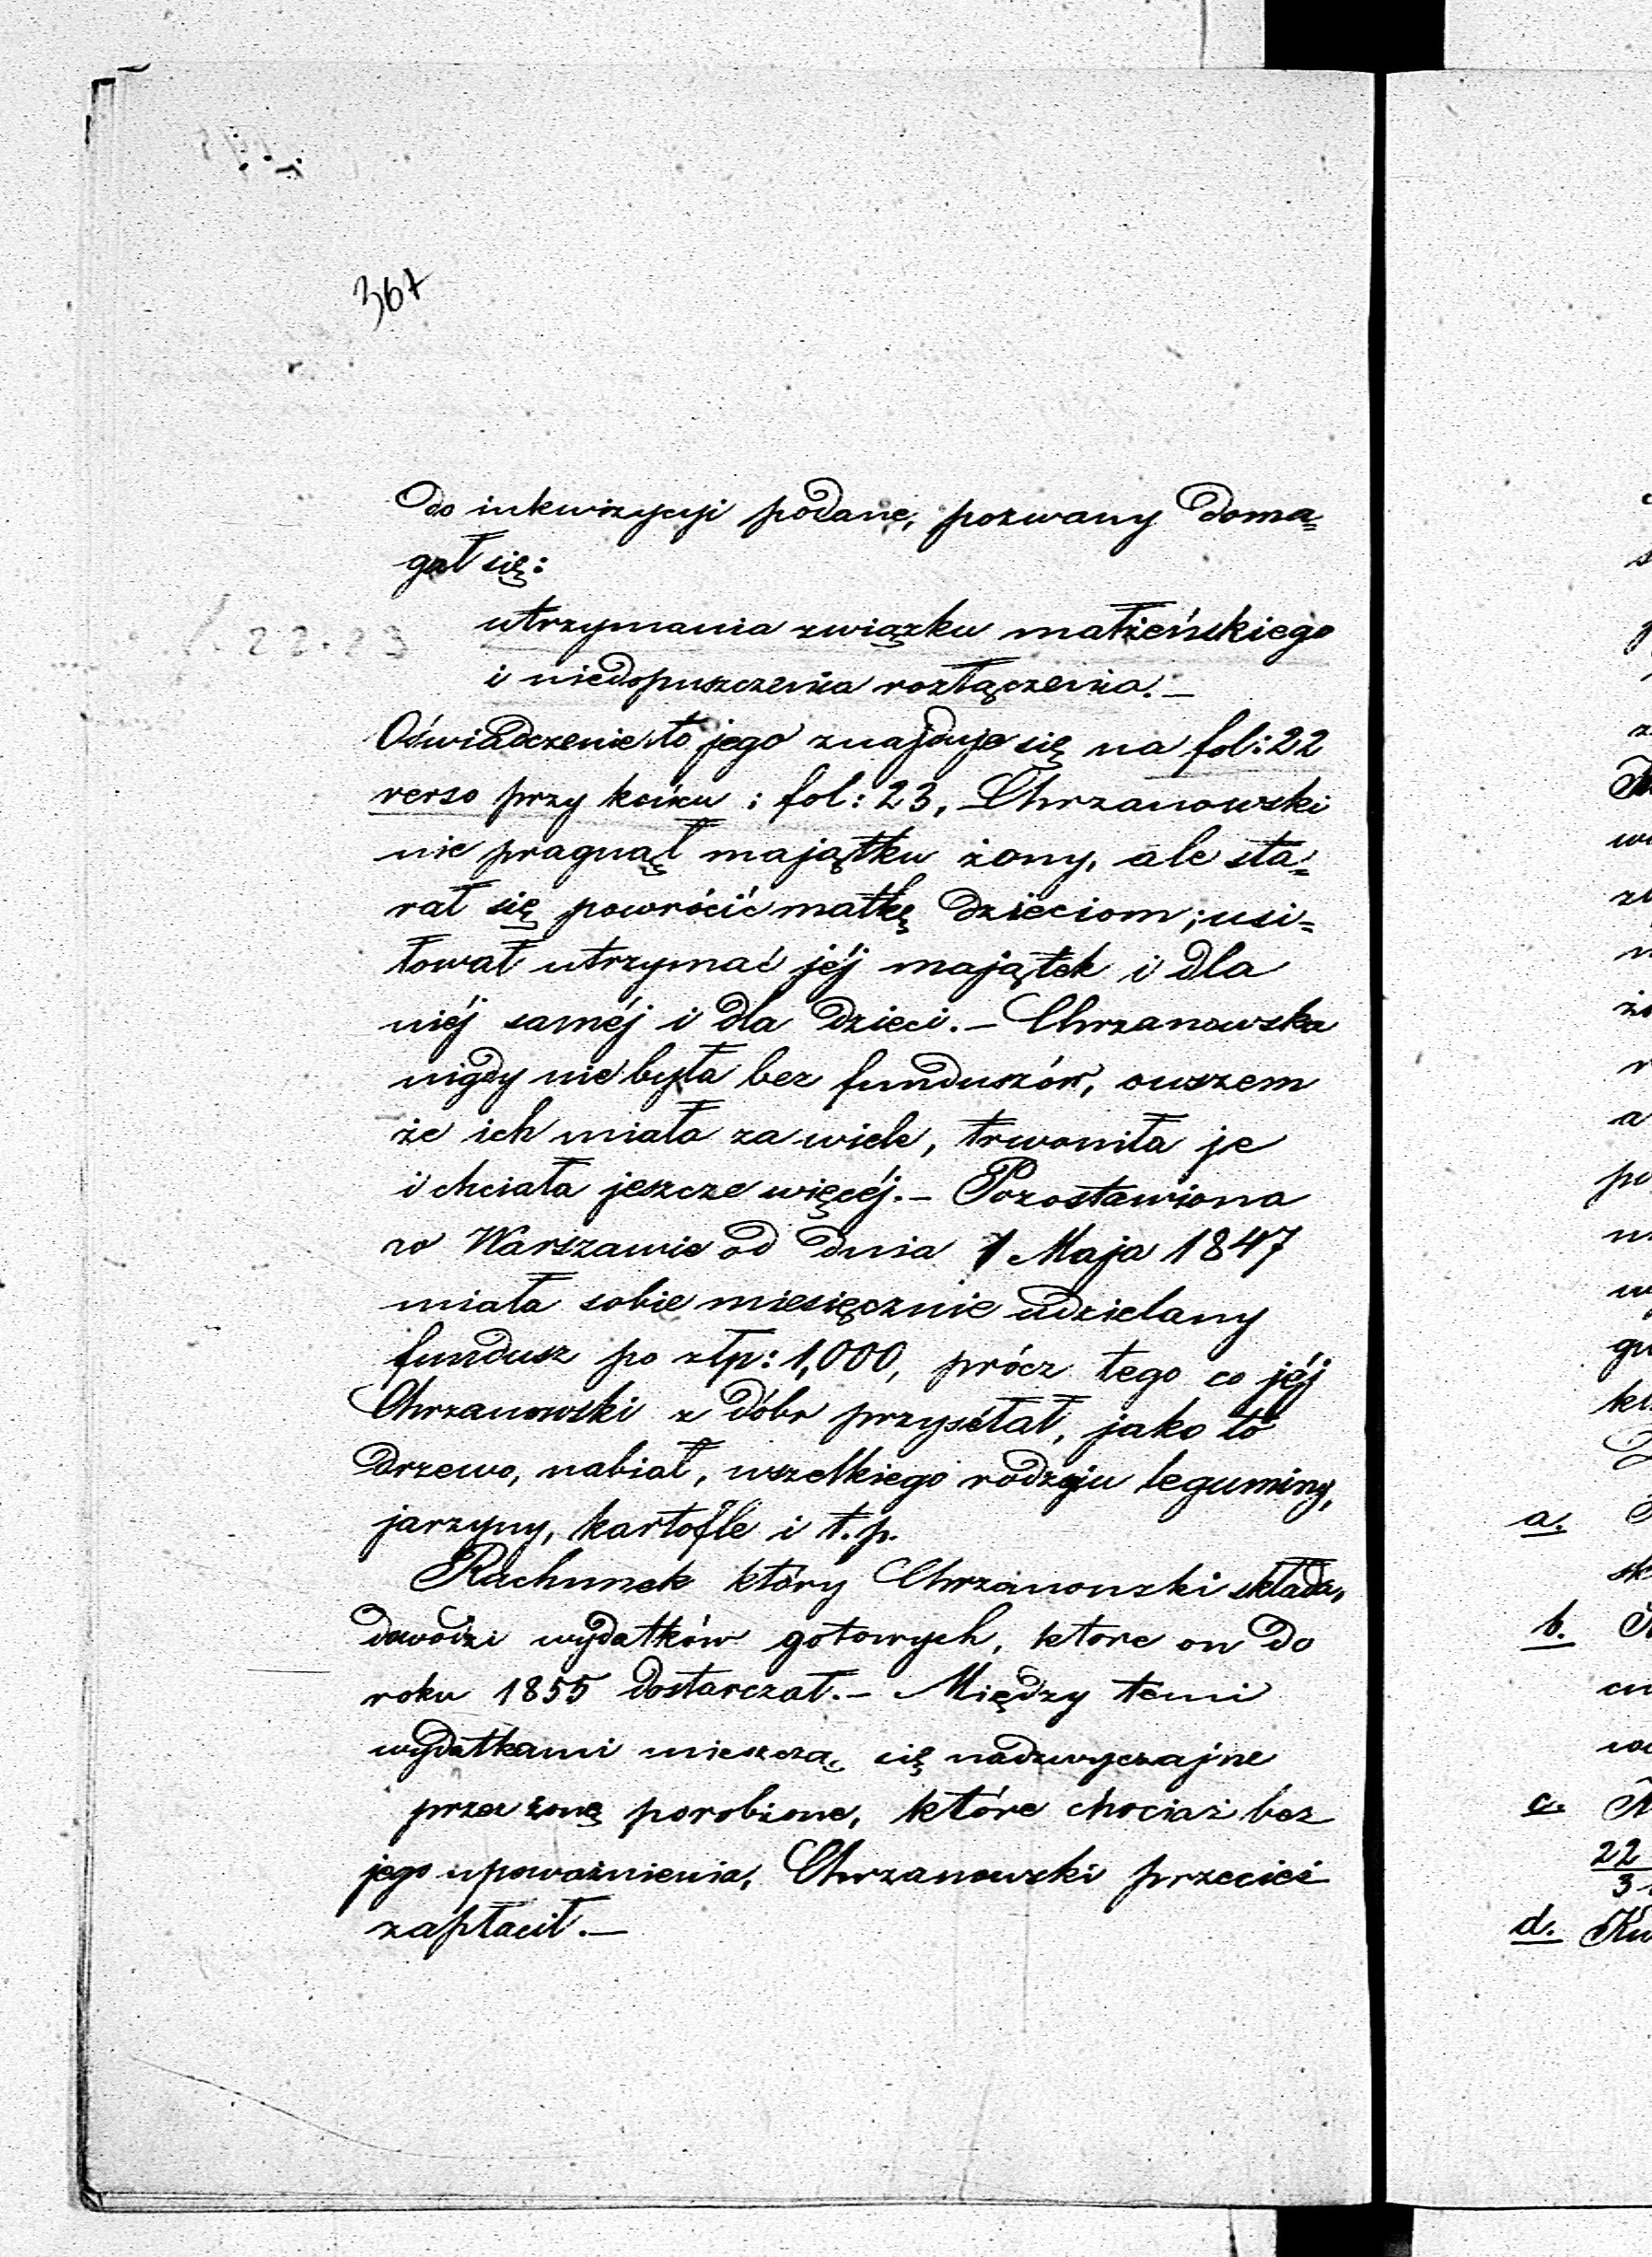 367
do inkwizycyi podane, pozwany doma=
gał się:
utrzymania związku małżeńskiego
i niedopuszczenia rozłączenia.—
f. 22-23
Oświadczenie to jego znajduje się na fol: 22
verso przy końcu : fol: 23, Chrzanowski
nie pragnął majątku żony, ale sta=
rał się powrócić matkę dzieciom; usi=
łował utrzymać jéj majątek i dla
niéj saméj i dla dzieci.— Chrzanowska
nigdy nie była bez funduszów, owszem
że ich miała za wiele, trwoniła je
i chciała jeszcze więcéj.— Pozostawiona
w Warszawie od dnia 1 Maja 1847
miała sobie miesięcznie udzielany
fundusz po złp: 1,000, prócz tego co jéj
Chrzanowski z dóbr przysełał, jako to
drzewo, nabiał, wszelkiego rodzaju leguminy,
jarzyny, kartofle i t. p.
Rachunek który Chrzanowski składa,
dowodzi wydatków gotowych, ktore on do
roku 1855 dostarczał.— Między temi
wydatkami mieszczą się nadzwyczajne
przez żonę porobione, które chociaż bez
jego upoważnienia, Chrzanowski przecież
zapłacił.—
a.
b.
c.
22
3
d.